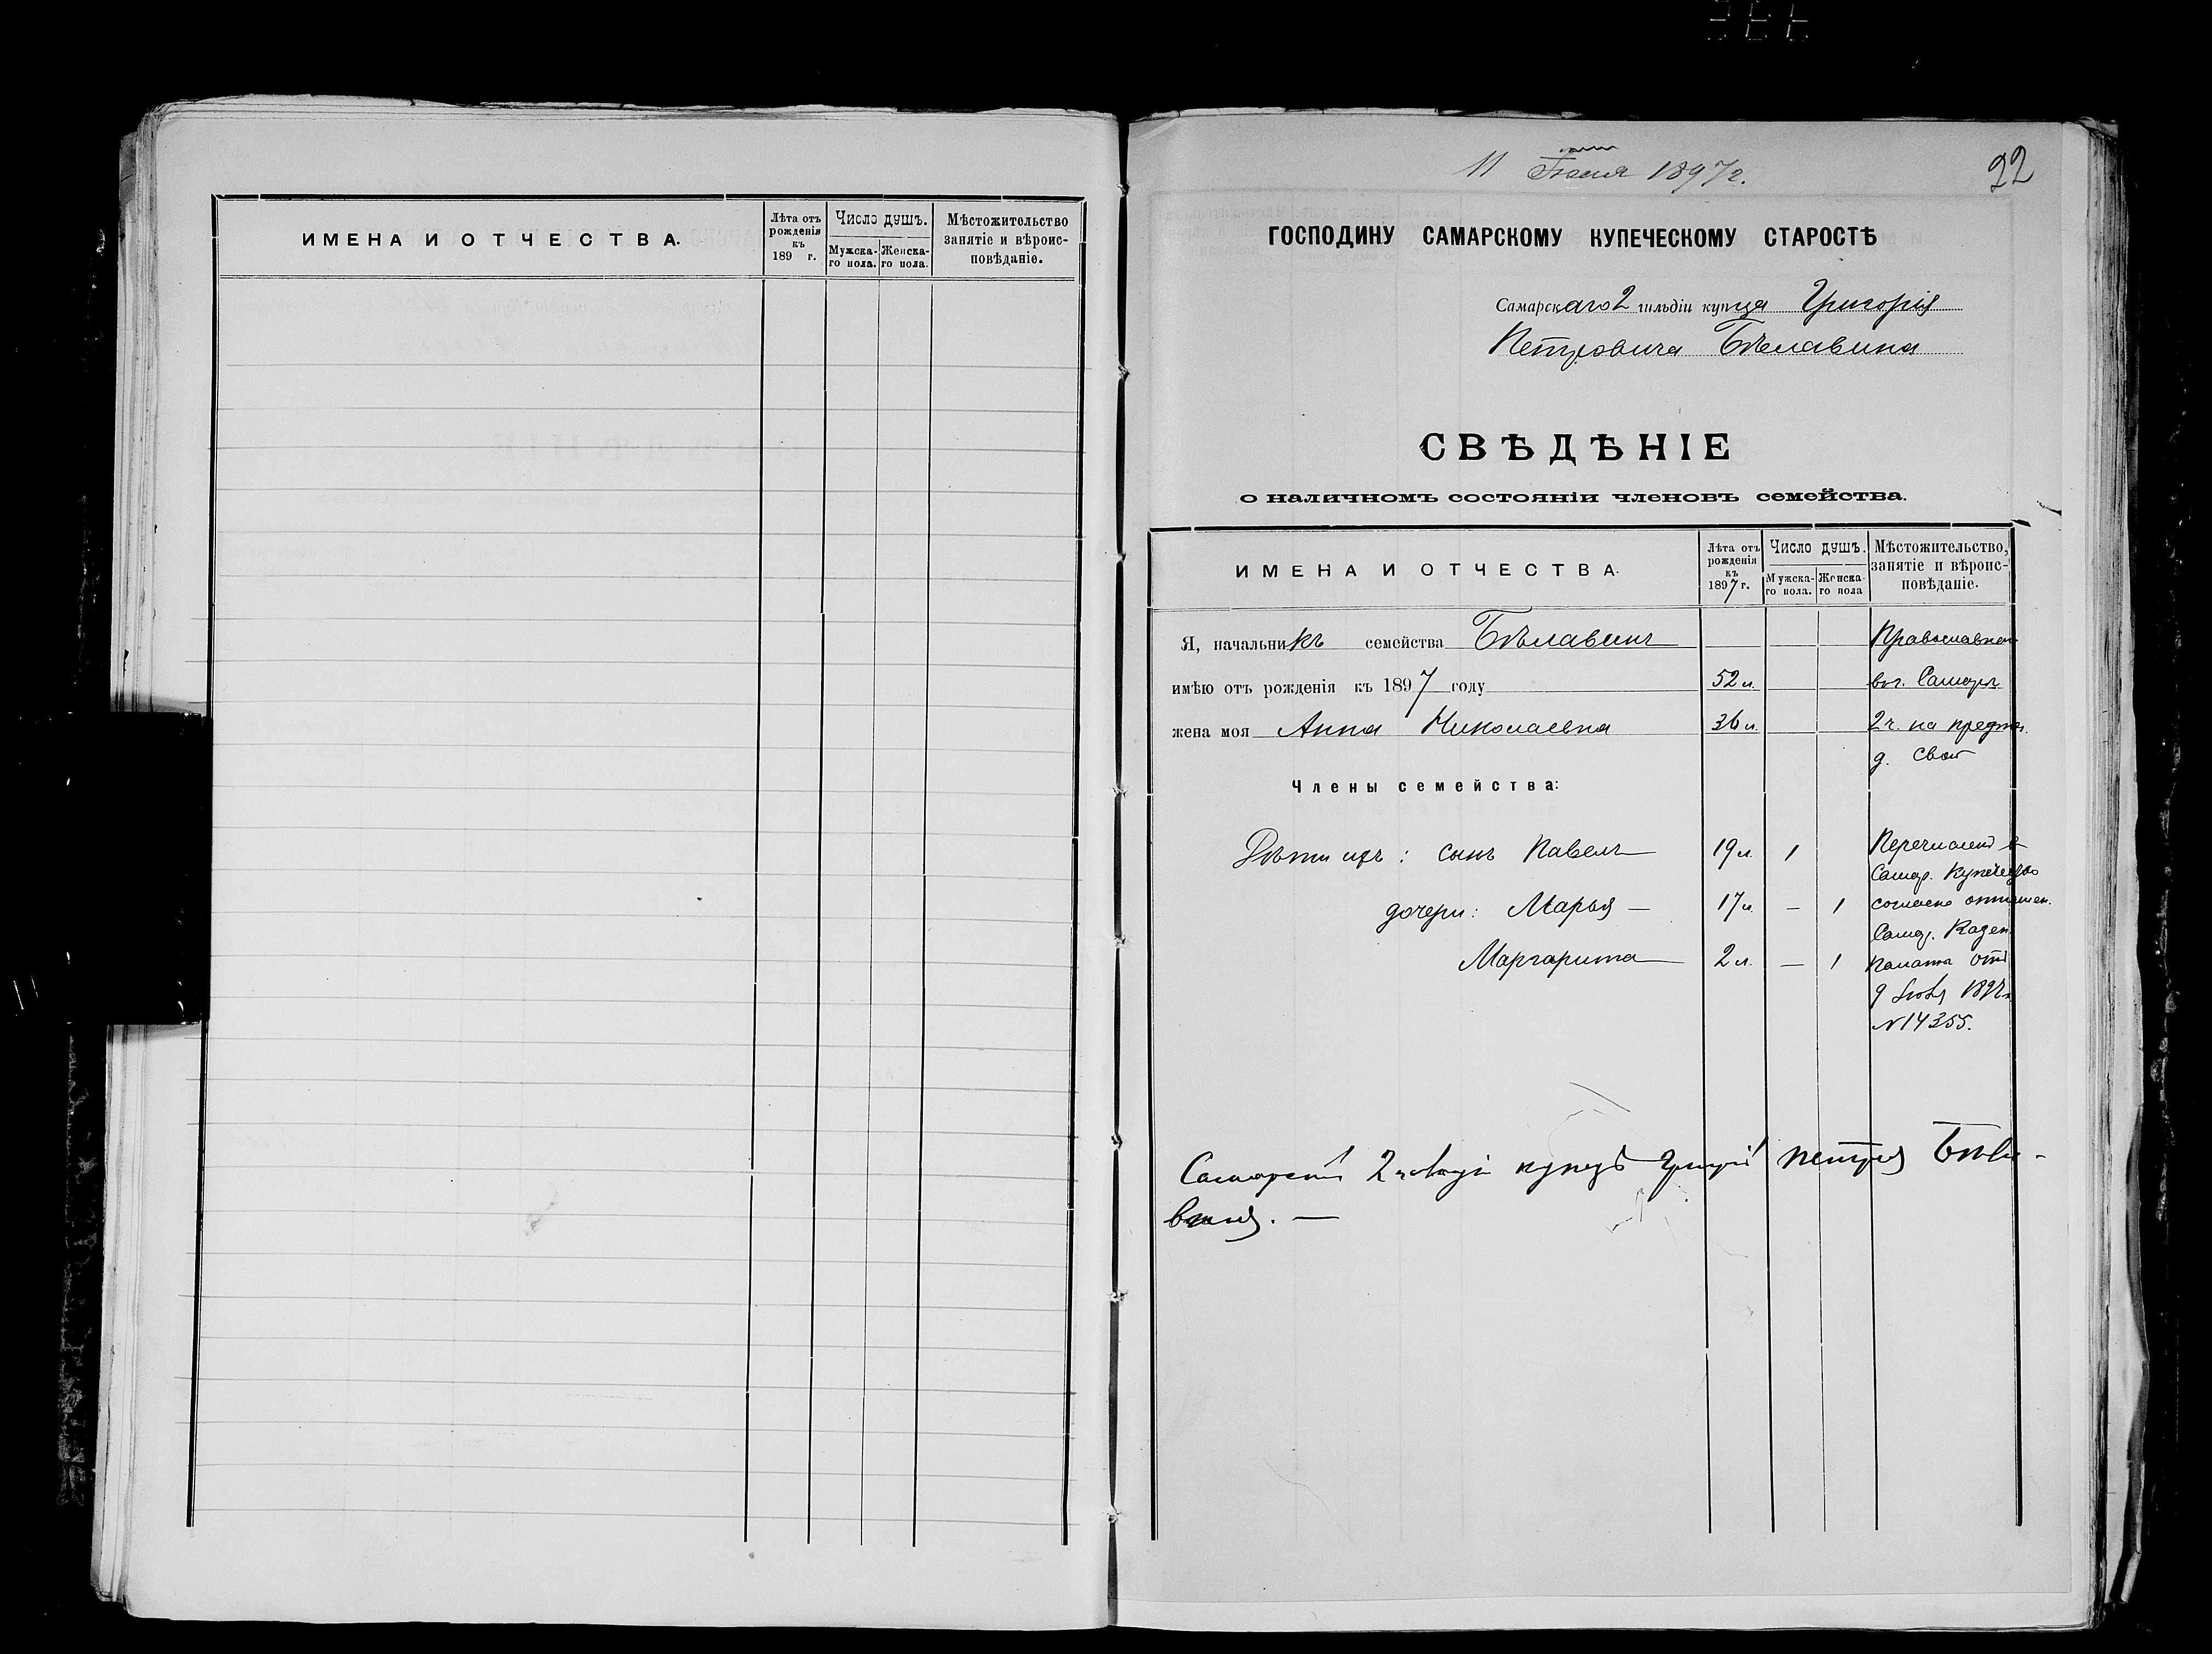 ИМЕНА И ОТЧЕСТВА.
Лѣта отъ рожденія къ 189 г.
Число душъ.
Мужска-го пола.
Женска-го пола.
Мѣстожительство занятіе и вѣроис-повѣданіе.
11 1897 г.
22
ГОСПОДИНУ САМАРСКОМУ КУПЕЧЕСКОМУ СТАРОСТѢ
Самарскаго 2 гильдіи купца Григорія
Петровича Бѣлавина
СВѢДѢНІЕ
о наличномъ состояніи членовъ семейства.
ИМЕНА И ОТЧЕСТВА.
Лѣта отъ рожденія къ 1897 г.
Число душъ.
Мужска-го пола.
Женска-го пола
Мѣстожительство, занятіе и вѣроис-повѣданіе.
Я, начальникъ семейства Бѣлавинъ
имѣю отъ рожденія къ 1897 году 52 л. въ г. Самарѣ
жена моя Анна Николаевна 36 л. 2 ч. на
д. свой
Члены семейства:
Дѣти ихъ: сынъ Павелъ 19 л. 1 Перечисленъ въ
Самар. купечество
дочери: Марья — 17 л. — 1 согласно
Самар. Казен.
Маргарита — 2 л. — 1 Палаты отъ
9 1897 г.
№ 14355.
Самарскій 2 гильдіи купецъ Григорій Петровъ Бѣла-
винъ. —